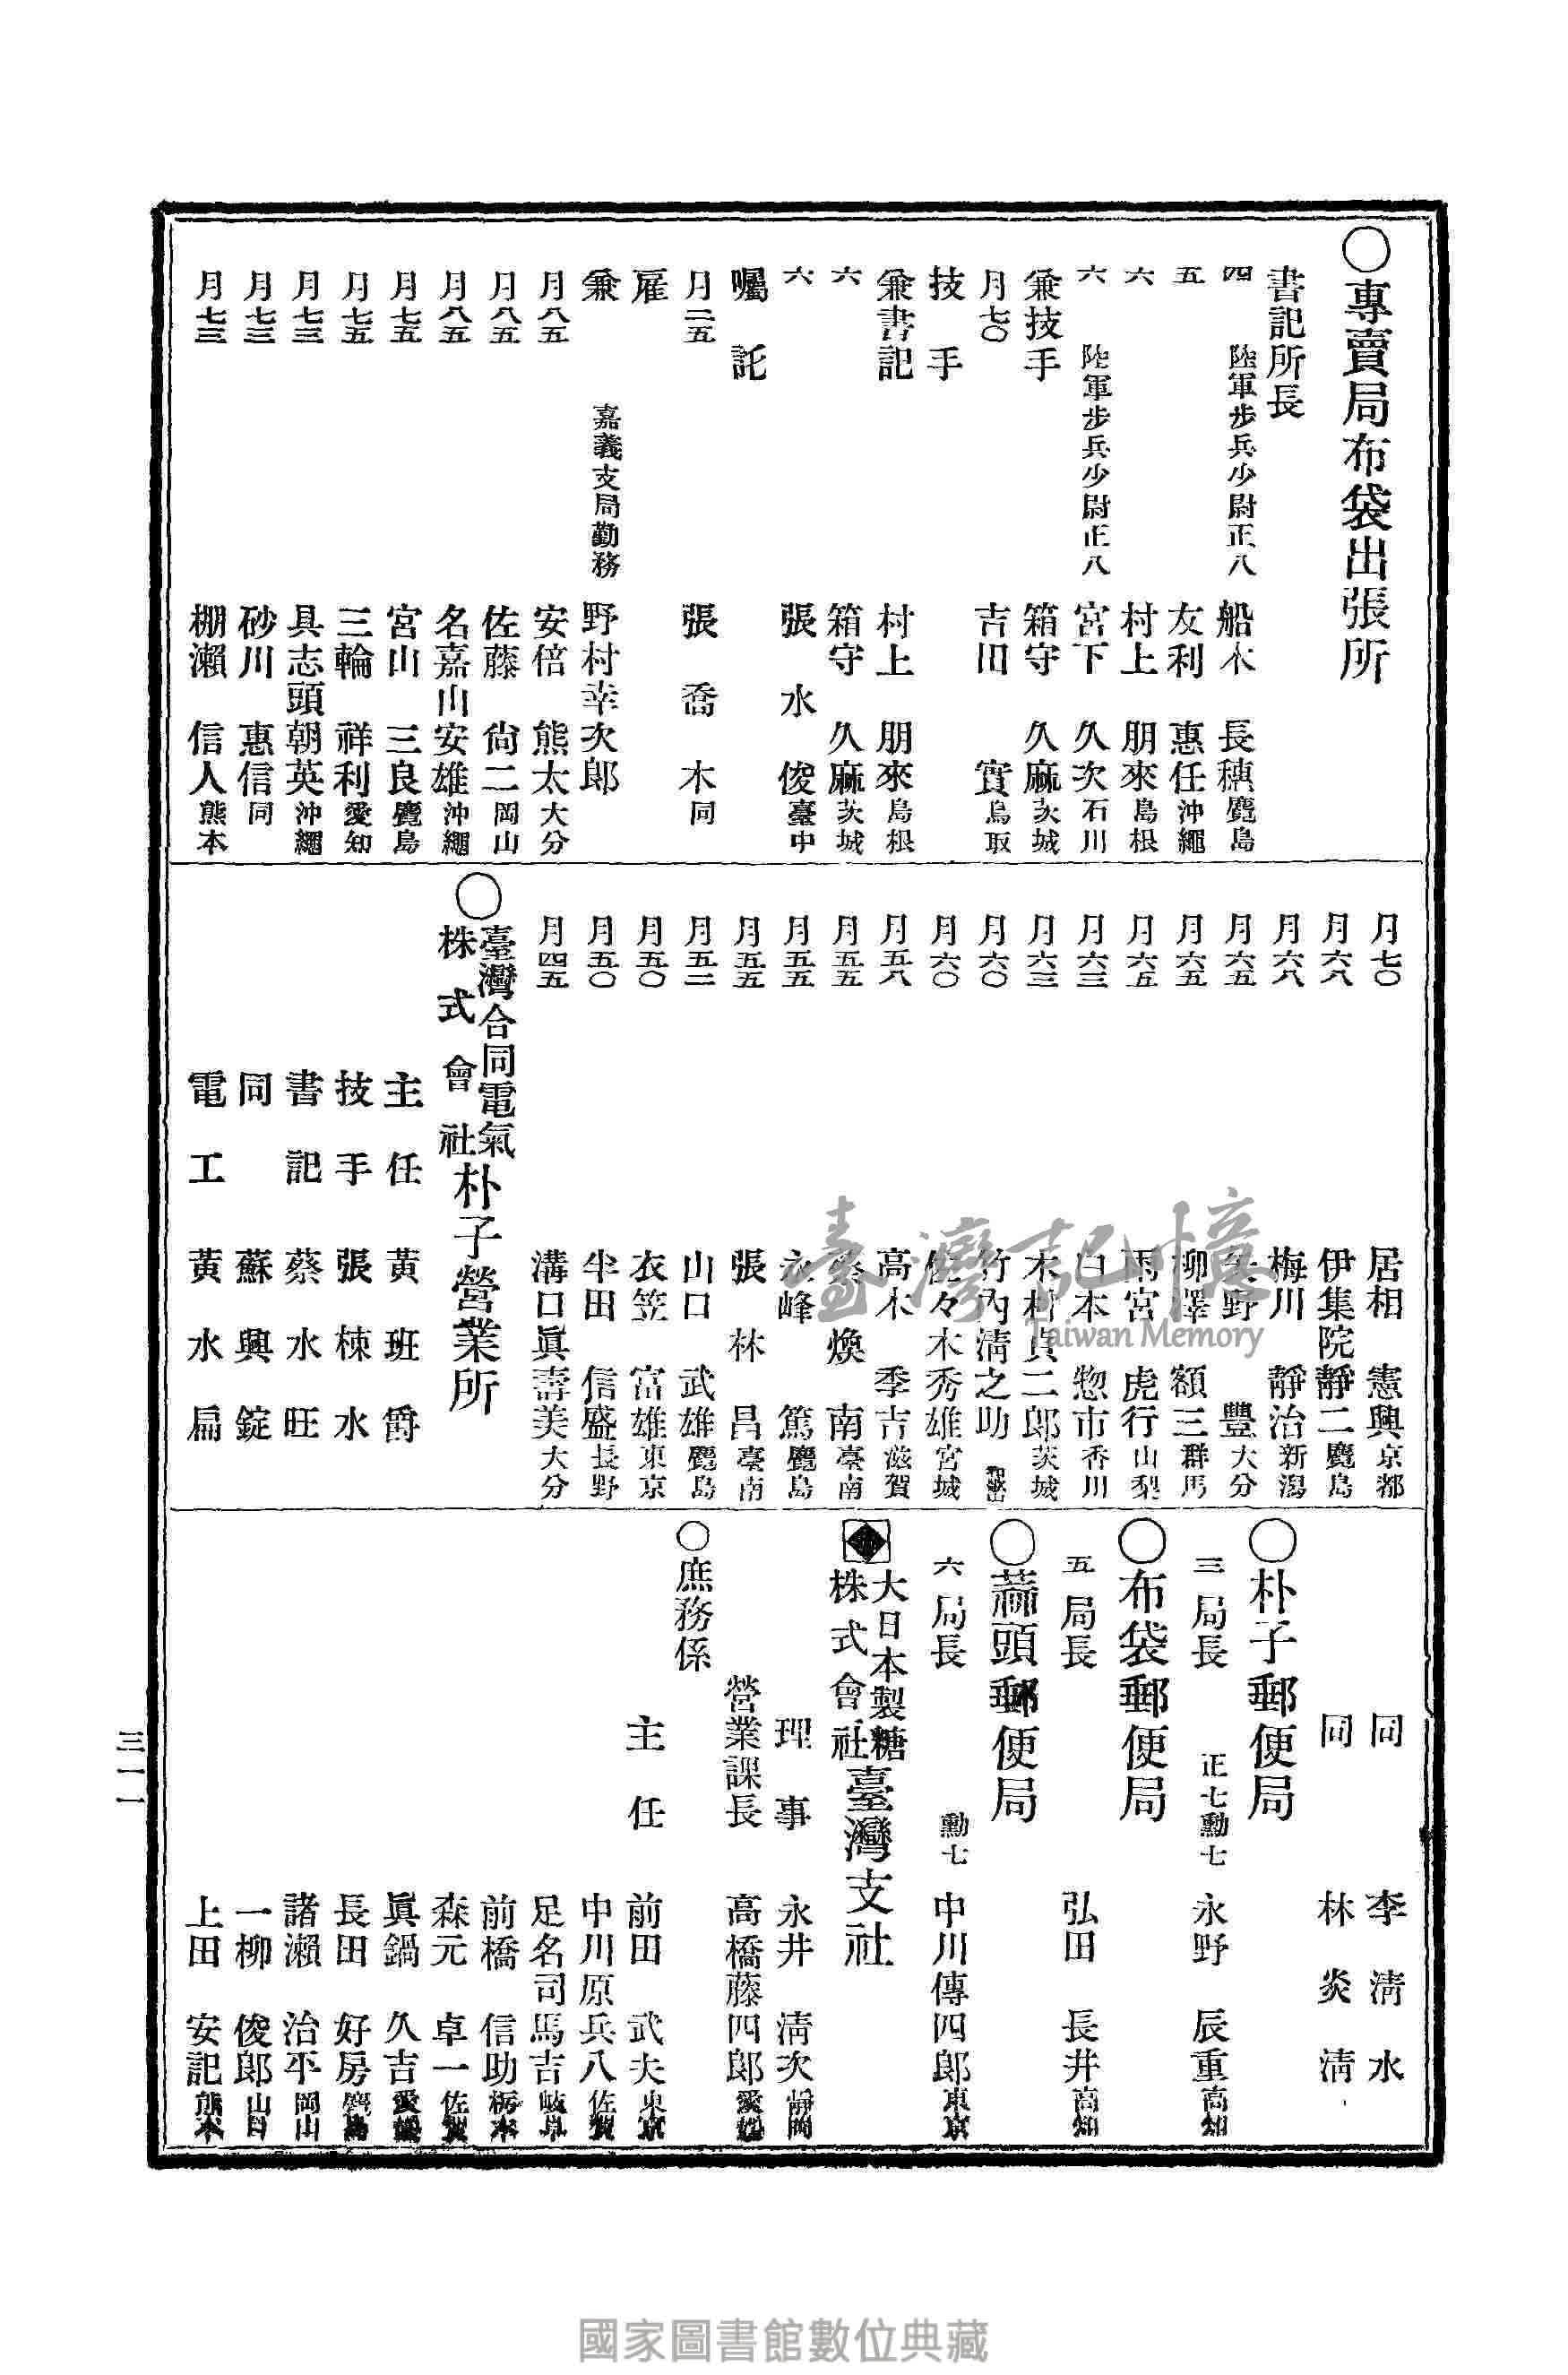 ○專賣局布袋出張所
書記所長
四 陸軍步兵少尉正八 船木 長穗 鹿兒島
五 友利 惠任 沖繩
六 村上 朋來 島根
六 陸軍步兵少尉正八 宮下 久次 石川
兼技手 箱守 久麻 茨城
月七〇 吉田 實 鳥取
技手
兼書記 村上 朋來 島根
六 箱守 久麻 茨城
六 張水俊 臺中
囑託
月二五 張喬木 同
雇
兼 嘉義支局勤務 野村幸次郎
月八五 安倍 熊太 大分
月八五 佐藤 尙二 岡山
月八五 名嘉山安雄 沖繩
月七五 宮山 三良 鹿兒島
月七五 三輪 祥利 愛知
月七三 具志頭朝英 沖繩
月七三 砂川 惠信 同
月七三 棚瀨 信人 熊本
月七〇 居相 憲興 京都
月六八 伊集院靜二 鹿兒島
月六八 梅川 靜治 新潟
月六五 矢野 豐 大分
月六五 柳澤 額三 群馬
月六五 雨宮 虎行 山梨
月六三 白本 惣市 香川
月六三 木村貞二郎 茨城
月六〇 竹內淸之助 和歌山
月六〇 佐々木秀雄 宮城
月五八 高木 季吉 滋賀
月五五 蔡煥南 臺南
月五五 永峰 篤 鹿兒島
月五五 張林昌 臺南
月五二 山口 武雄 鹿兒島
月五〇 衣笠 富雄 東京
月五〇 半田 信盛 長野
月四五 溝口眞壽美 大分
○臺灣合同電氣株式會社朴子營業所
主任 黃班爵
技手 張棟水
書記 蔡水旺
同 蘇興錠
電工 黃水扁
同 李淸水
同 林炎淸
○朴子郵便局
三 局長 正七勳七 永野 辰重 高知
○布袋郵便局
五 局長 弘田 長井 高知
○蒜頭郵便局
六 局長 勳七 中川傳四郎 東京
大日本製糖株式會社臺灣支社
理事 永井 淸次 靜岡
營業課長 高橋藤四郎 愛媛
○庶務係
主任 前田 武夫 東京
中川原兵八 佐賀
足名司馬吉 岐阜
前橋 信助 栃木
森元 卓一 佐賀
眞鍋 久吉 愛媛
長田 好房 鹿兒島
諸瀨 治平 岡山
一柳 俊郎 山口
上田 安記 熊本
三一一
臺灣記憶
Taiwan Memory
國家圖書館數位典藏